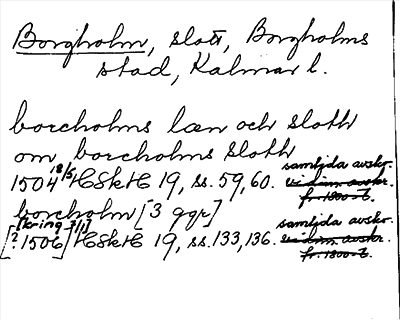 Borgholm, slott, Borgholms
stad, Kalmar l.
borcholms læn och sloth
om borcholms sloth
1504 18/5 HSkH 19, ss. 59, 60. samtida avskr.
vidim. avskr.
fr. 1800-t.
borcholm [3 ggr]
[? 1506] [kring 7/1] HSkH 19, ss. 133, 136. samtida avskr.
vidim. avskr.
fr. 1800-t.